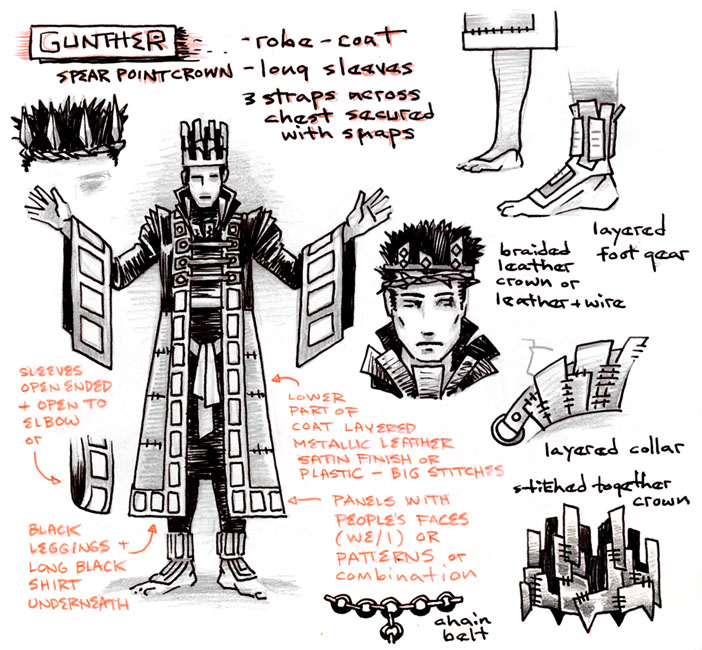 GUNTHER
SPEAR POINT CROWN
- robe-coat
- long sleeves
3 straps across
chest secured
with snaps
layered
foot gear
braided
leather
crown or
leather + wire
SLEEVES
OPEN ENDED
+ OPEN TO
ELBOW
OR
LOWER
PART OF
COAT LAYERED
METALLIC LEATHER
SATIN FINISH OR
PLASTIC - BIG STITCHES
layered collar
stitched together
crown
PANELS WITH
PEOPLE'S FACES
(WE/I) OR
PATTERNS or
combination
BLACK
LEGGINGS +
LONG BLACK
SHIRT
UNDERNEATH
chain
belt